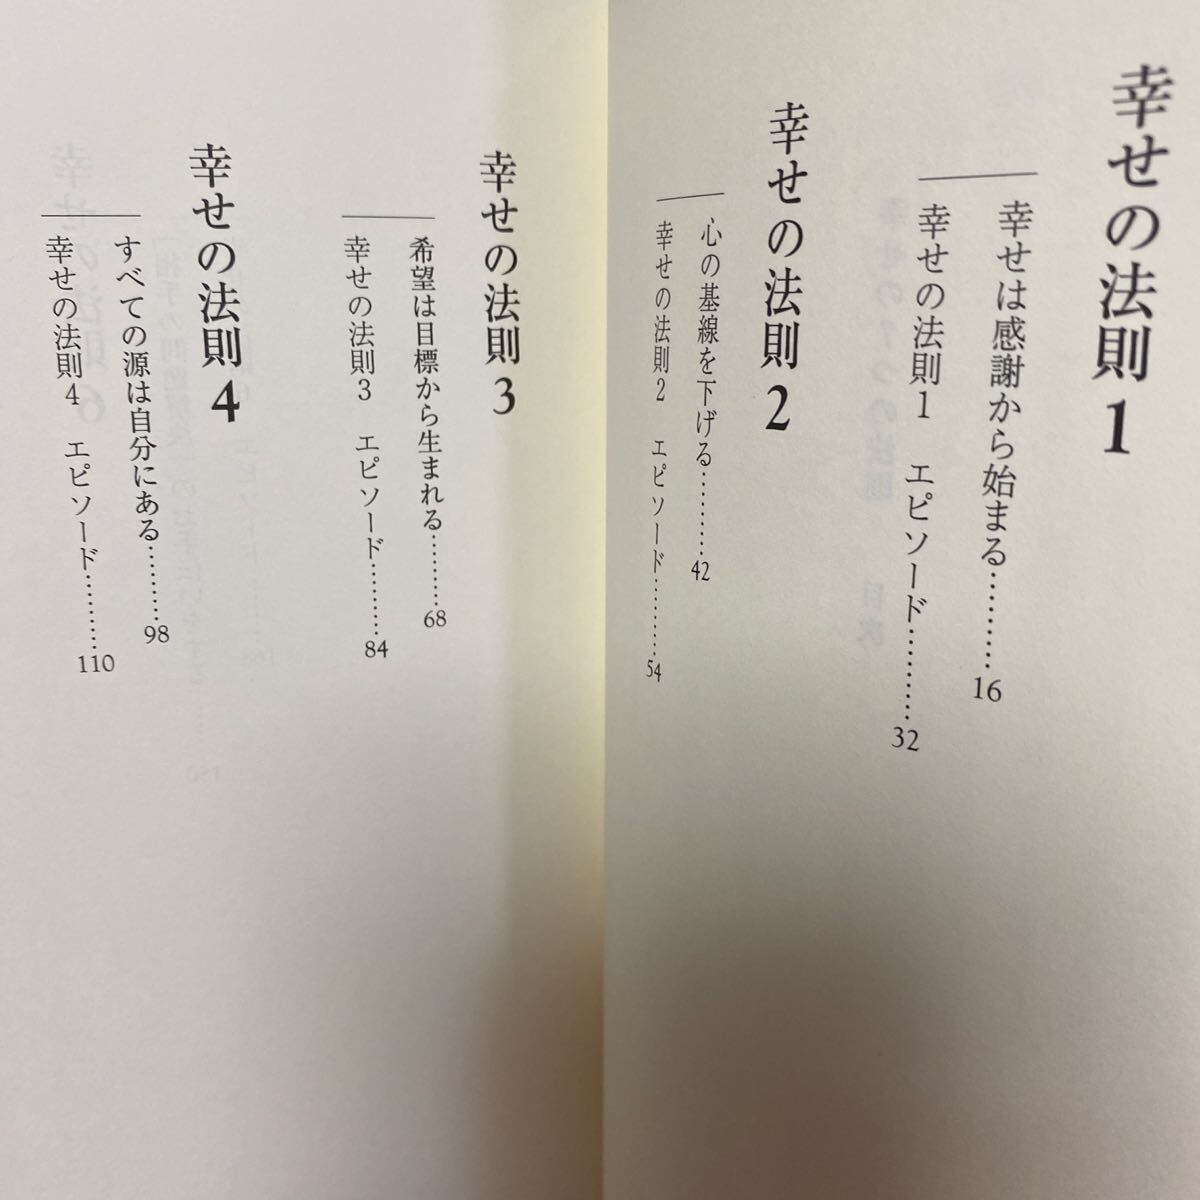 幸せの法則1
幸せは感謝から始まる…………16
幸せの法則1　エピソード…………32
幸せの法則2
心の基線を下げる…………42
幸せの法則2　エピソード…………54
幸せの法則3
希望は目標から生まれる…………68
幸せの法則3　エピソード…………84
幸せの法則4
すべての源は自分にある…………98
幸せの法則4　エピソード…………110